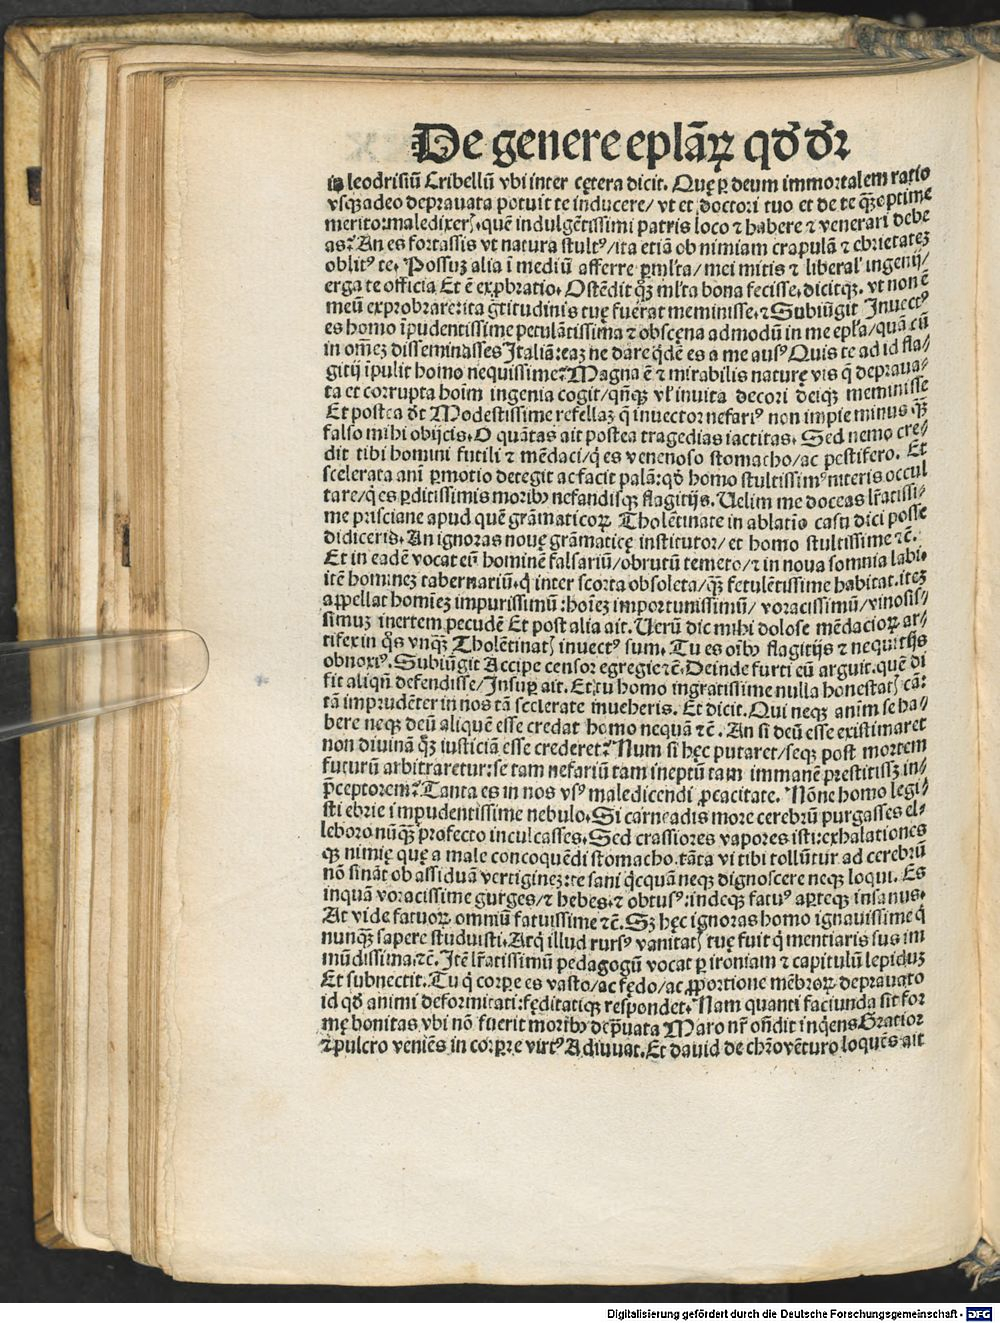 De genere eplãꝝ qð ðꝛ
in leodrisiũ Cribellũ vbi inter cętera dicit. Quę ꝑ deum immortalem ratio
vsqꝫ adeo deprauata potuit te inducere/ vt et doctori tuo et de te qꝫ optime
merito: maledixerꝭ. quẽ indulgẽtissimi patris loco ⁊ habere ⁊ venerari debe
as? An es fortassis vt natura stultꝰ/ ita etiã ob nimiam crapulã ⁊ ebrietateꝫ
oblitꝰ te. Possuꝫ alia ĩ mediũ afferre ꝑml'ta/ mei mitis ⁊ liberal' ingenij/
erga te officia Et ẽ exꝓbratio. Ostẽdit qꝫ ml'ta bona fecisse. dicitqꝫ. vt non ẽ
meũ exprobrare: ita gͣtitudinis tuę fuerat meminisse. ⁊ Subiũgit Inuectꝰ
es homo ĩpudentissime petulãtissima ⁊ obscęna admodũ in me epl'a/ quã cũ
in om̃eꝫ disseminasses Italiã: eaꝫ ne dare qͥdẽ es a me ausꝰ Quis te ad id fla/
gitij ĩpulit homo nequissime? Magna ẽ ⁊ mirabilis naturę vis q̃ deprauа/
ta et corrupta hoĩm ingenia cogit/ qñqꝫ vl' inuita decori deiqꝫ meminisse
Et postea ðt Modestissime refellaꝫ q̃ inuector nefariꝰ non impie minus qꝫ
falso mihi obijcis. O quãtas ait postea tragedias iactitas. Sed nemo cre/
dit tibi homini futili ⁊ mẽdaci/ qͥ es venenoso stomacho/ ac pestifero. Et
scelerata anĩ ꝑmotio detegit ac facit palã: qð homo stultissimꝰ niteris occul
tare/ qͥ es ꝑditissimis moribꝰ nefandisqꝫ flagitijs. Uelim me doceas lr̃atissi/
me prisciane apud quẽ grãmaticoꝝ Tholẽtinate in ablatio casu dici posse
didiceris. An ignoras nouę grãmaticę institutor/ et homo stultissime ⁊c̃.
Et in eadẽ vocat eũ hominẽ falsariũ/ obrutũ temeto/ ⁊ in noua somnia labi.
itẽ homineꝫ tabernariũ. qͥ inter scorta obsoleta/ qꝫ fetulẽtissime habitat. iteꝫ
appellat homĩeꝫ impurissimũ: hoĩeꝫ importunissimũ/ voracissimũ/ vinosis/
simuꝫ inertem pecudẽ Et post alia ait. Uerũ dic mihi dolose mẽdacioꝝ ar/
tifex in qͦs vnqꝫ Tholẽtinatꝭ inuectꝰ sum. Tu es oĩbꝰ flagitijs ⁊ nequitijs
obnoxiꝰ. Subiũgit Accipe censor egregie ⁊c̃. Deinde furti eũ arguit. quẽ di
fit aliqñ defendisse/ Insuꝑ ait. Et tu homo ingratissime nulla honestatꝭ cã:
tã imprudẽter in nos tã scelerate inueheris. Et dicit. Qui neqꝫ anĩm se ha/
bere neqꝫ deũ aliquẽ esse credat homo nequã ⁊c̃. An si deũ esse existimaret
non diuinã qꝫ iusticiã esse crederet? Num si hęc putaret/ seqꝫ post mortem
futurũ arbitraretur: se tam nefariũ tam ineptũ tam immanẽ prestitissꝫ in/
p̃ceptorem? Tanta es in nos vsꝰ maledicendi ꝓcacitate. Nõne homo legi/
sti ebrie impudentissime nebulo. Si carneadis more cerebrũ purgasses el/
leboro nũqꝫ profecto inculcasses. Sed crassiores vapores isti: exhalationes
qꝫ nimię quę a male concoquẽdi stomacho. tãta vi tibi tollũtur ad cerebrũ
nõ sinãt ob assiduã vertigineꝫ: te sani qͥcquã neqꝫ dignoscere neqꝫ loqui. Es
inquã voracissime gurges/ ⁊ hebes. ⁊ obtusꝰ: indeqꝫ fatuꝰ aꝑteqꝫ insanus.
At vide fatuoꝝ omniũ fatuissime ⁊c̃. Sꝫ hęc ignoras homo ignauissime qͥ
nunqꝫ sapere studuisti. Atqͥ illud rursꝰ vanitatꝭ tuę fuit qͥ mentiaris sus im
mũdissima. ⁊c̃. Itẽ lr̃atissimũ pedagogũ vocat ꝑ ironiam ⁊ capitulũ lepiduꝫ
Et subnectit. Tu qͥ corꝑe es vasto/ ac fędo/ ac ꝓportione mẽbroꝝ deprauato
id qð animi deformitati: fęditatiqꝫ respondet. Nam quanti faciunda sit for
mę bonitas vbi nõ fuerit moribꝰ dep̃uata Maro nr̃ oñdit inqͥens Gratior
⁊ pulcro veniẽs in corꝑre virtꝰ Adiuuat. Et dauid de chr̃o vẽturo loquẽs ait
Digitalisierung gefördert durch die Deutsche Forschungsgemeinschaft - DFG